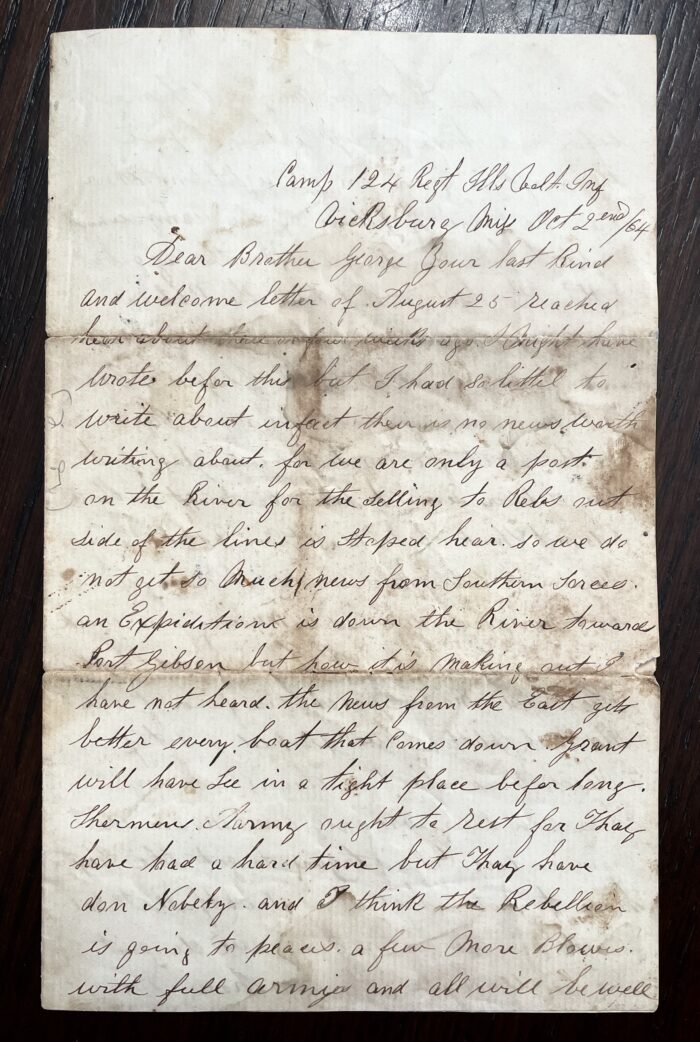 Camp 124 Regt Ills Volt. Inf
Vicksburg Miss Oct 2end/64
Dear Brother George Your last Kind
and welcome letter of August 25 reached
hear about three or four weeks ago. I Might have
wrote befor this but I had so littel to
write about infact ther is no news worth
writing about. for we are only a post.
on the River for the selling to Rebs out
side of the lines is stoped hear. so we do
not get so Much news from Southern Sorces.
an Expidition is down the River towards
Port Gibson but how it is Making out I
have not heard. the News from the East gets
better every boat that Comes down. Grant
will have Lee in a tight place befor long.
Shermens Aarmy ought to rest for Thay
have had a hard time but Thay have
don Nobely. and I think the Rebellion
is going to peaces. a few More Blows.
with full armies and all will be well